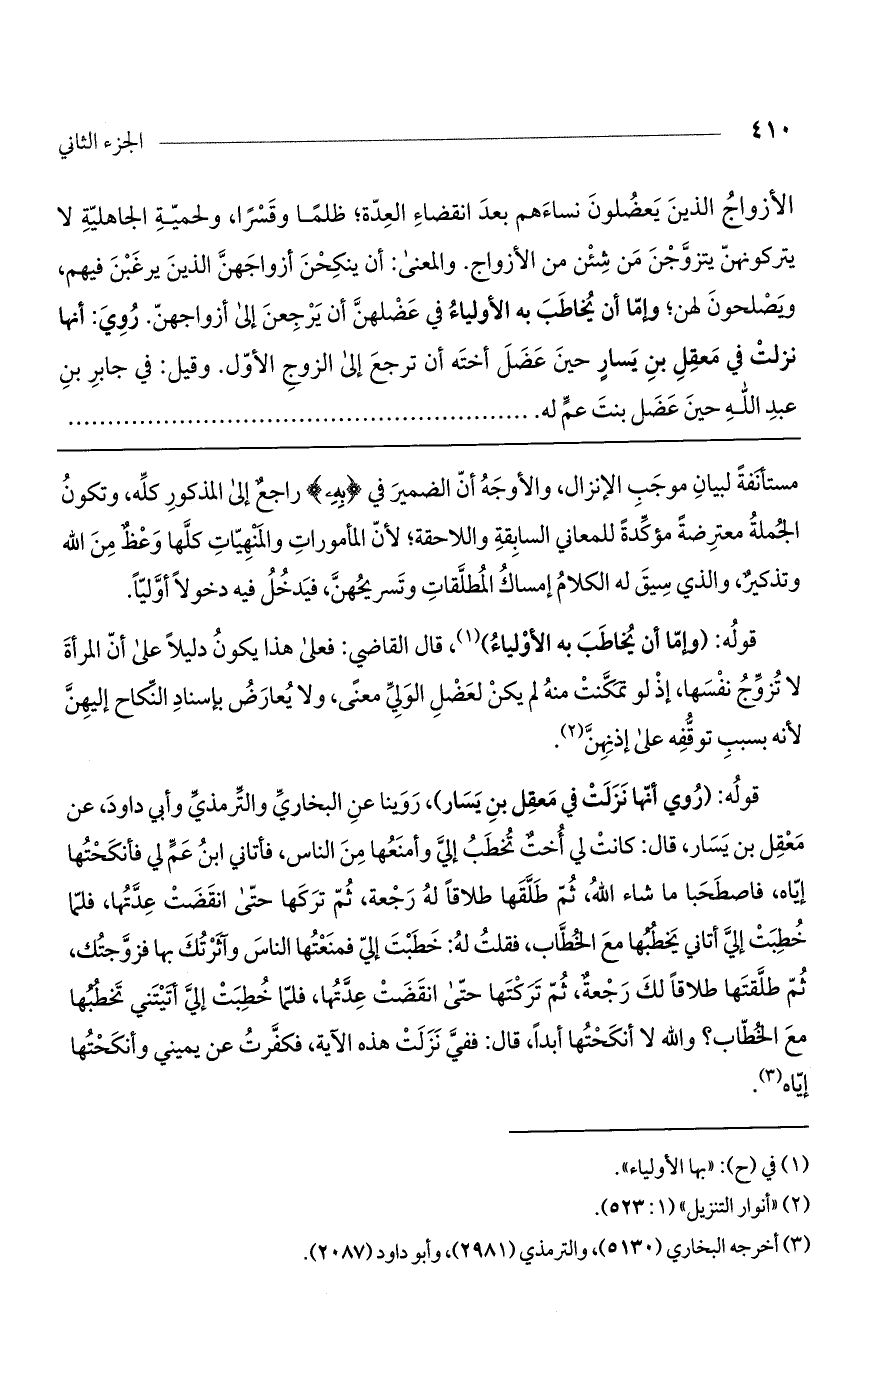 ٤١٠ الجزء الثاني
الأزواجُ الذينَ يَعضُلونَ نساءَهم بعدَ انقضاءِ العِدّة؛ ظلمًا وقَسْرًا، ولحميّةِ الجاهليّةِ لا
يتركونهنّ يتزوَّجْنَ مَن شِئْن من الأزواج. والمعنىٰ: أن ينكِحْنَ أزواجَهنَّ الذينَ يرغَبْنَ فيهم،
ويَصْلحونَ لهن؛ وإمّا أن يُخاطَبَ به الأولياءُ في عَضْلهنَّ أن يَرْجِعنَ إلىٰ أزواجهنّ. رُوِيَ: أنها
نزلتْ في مَعقِلِ بنِ يَسارٍ حينَ عَضَلَ أختَه أن ترجعَ إلىٰ الزوجِ الأوّل. وقيل: في جابرِ بنِ
عبدِ اللهِ حينَ عَضَل بنتَ عمٍّ له. ...........................................................
مستأنَفةً لبيانِ موجَبِ الإنزال، والأوجَهُ أنّ الضميرَ في ﴿بِهِۦ﴾ راجعٌ إلىٰ المذكورِ كلِّه، وتكونُ
الجُملةُ معترِضةً مؤكِّدةً للمعاني السابِقةِ واللاحقة؛ لأنّ المأموراتِ والمَنْهِيّاتِ كلَّها وَعْظٌ مِنَ الله
وتذكيرٌ، والذي سِيقَ له الكلامُ إمساكُ المُطلَّقاتِ وتَسريحُهنَّ، فيَدخُلُ فيه دخولاً أوَّليّاً.
قولُه: (وإمّا أن يُخاطَبَ به الأوْلياءُ)(١)، قال القاضي: فعلىٰ هذا يكونُ دليلاً علىٰ أنّ المرأةَ
لا تُزوِّجُ نفْسَها، إذْ لو تمكَّنتْ منهُ لم يكنْ لعَضْلِ الوَليِّ معنًى، ولا يُعارَضُ بإسنادِ النِّكاح إليهِنَّ
لأنه بسببِ توقُّفِه علىٰ إذنِهِنَّ(٢).
قولُه: (رُوي أنّها نَزَلَتْ في مَعقِل بنِ يَسَار)، رَوَينا عنِ البخاريِّ والتِّرمذيِّ وأبي داودَ، عن
مَعْقِل بن يَسَار، قال: كانتْ لي أُختٌ تُخطَبُ إليَّ وأمنَعُها مِنَ الناس، فأتاني ابنُ عَمٍّ لي فأنكَحْتُها
إيّاه، فاصطَحَبا ما شاء اللهُ، ثُمّ طَلَّقَها طلاقاً لهُ رَجْعة، ثُمّ تركَها حتّىٰ انقَضَتْ عِدَّتُها، فلمّا
خُطِبَتْ إليَّ أتاني يَخطُبُها معَ الخُطَّاب، فقلتُ لهُ: خَطَبْتَ إليّ فمنَعْتُها الناسَ وآثَرْتُكَ بها فزوَّجتُك،
ثُمّ طلَّقتَها طلاقاً لكَ رَجْعةٌ، ثُمّ تَرَكْتَها حتّىٰ انقَضَتْ عِدَّتُها، فلمّا خُطِبَتْ إليَّ أتَيْتَني تَخطُبُها
معَ الخُطّاب؟ والله لا أنكَحْتُها أبداً، قال: ففيَّ نَزَلَتْ هذه الآية، فكفَّرتُ عن يميني وأنكَحْتُها
إيّاه(٣).
(١) في (ح): «بها الأولياء».
(٢) «أنوار التنزيل» (١: ٥٢٣).
(٣) أخرجه البخاري (٥١٣٠)، والترمذي (٢٩٨١)، وأبو داود (٢٠٨٧).